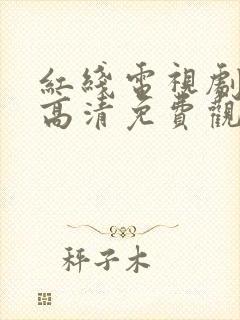 紅綫電視劇
高清免費觀
秤子木